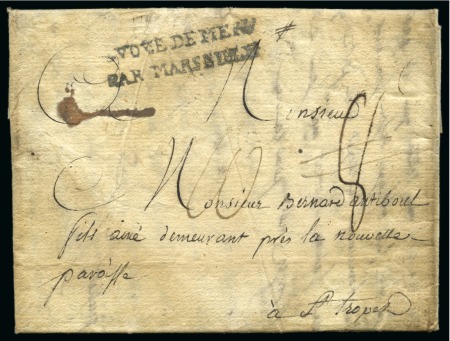 VOYE DE MER
PAR MARSEILLE
Monsieur
8
Monsieur Bernard antiboul
fils ainé demeurant près la nouvelle
paroisse
à St tropes